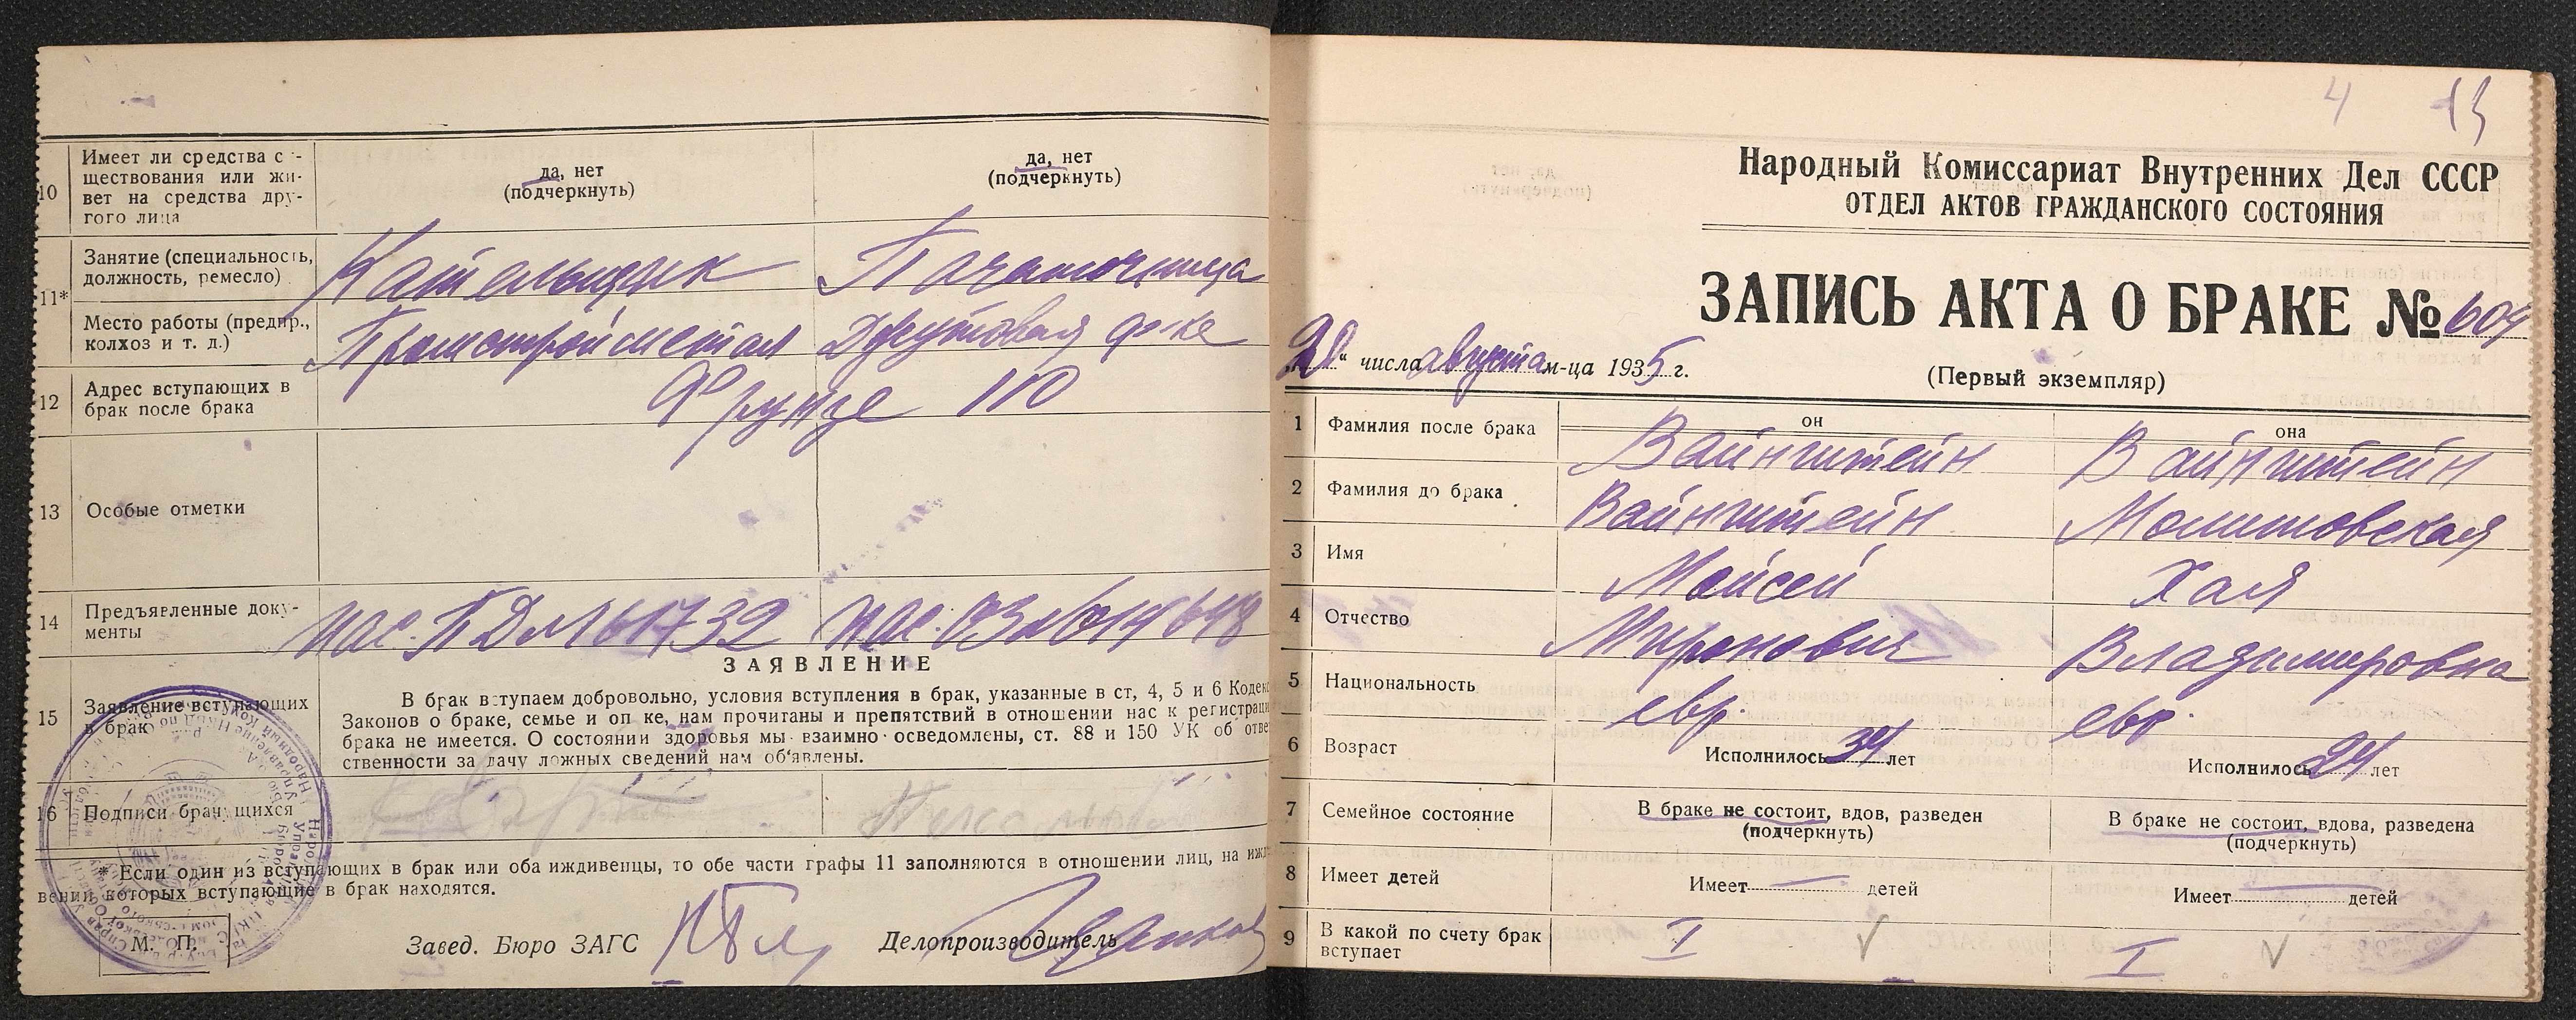 10 Имеет ли средства с -
ществования или жи-
вет на средства дру-
гого лица
да, нет
(подчеркнуть)
да, нет
(подчеркнуть)
11* Занятие (специальность,
должность, ремесло)
Кательщик
Початочница
Место работы (предпр.,
колхоз и т. д.)
Промстройметал
Джутовая ф-ке
12 Адрес вступающих в
брак после брака
Фрунзе 110
13 Особые отметки
14 Предъявленные доку-
менты
пас. ПД № 61732
15 Заявление вступающих
в брак
ЗАЯВЛЕНИЕ
В брак вступаем добровольно, условия вступления в брак, указанные в ст, 4, 5 и 6 Кодек
Законов о браке, семье и оп ке, нам прочитаны и препятствий в отношении нас к регистраци
брака не имеется. О состоянии здоровья мы взаимно осведомлены, ст. 88 и 150 УК об отве
ственности за дачу ложных сведений нам об'явлены.
16 Подписи брачущихся
* Если один из вступающих в брак или оба иждивенцы, то обе части графы 11 заполняются в отношении лиц, на ижд
вении которых вступающие в брак находятся.
М. П.
Завед. Бюро ЗАГС
Делопроизводитель
4 13
Народный Комиссариат Внутренних Дел СССР
ОТДЕЛ АКТОВ ГРАЖДАНСКОГО СОСТОЯНИЯ
ЗАПИСЬ АКТА О БРАКЕ № 604
"20" числа августа м-ца 1935 г.
(Первый экземпляр)
он
она
1 Фамилия после брака
Вайнштейн
Вайнштейн
2 Фамилия до брака
Вайнштейн
3 Имя
Мойсей
Хая
4 Отчество
Миронович
Владимировна
5 Национальность
евр.
евр.
6 Возраст
Исполнилось 34 лет
Исполнилось 24 лет
7 Семейное состояние
В браке не состоит, вдов, разведен
(подчеркнуть)
В браке не состоит, вдова, разведена
(подчеркнуть)
8 Имеет детей
Имеет — детей
Имеет — детей
9 В какой по счету брак
вступает
I
I